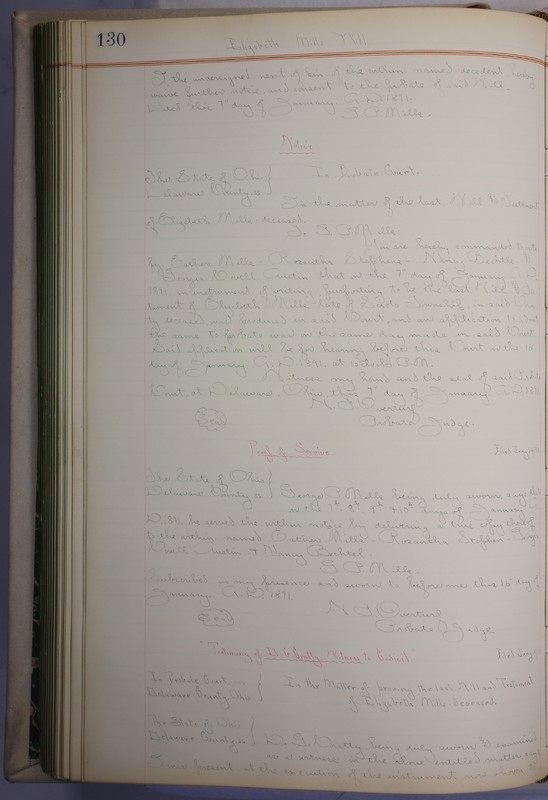 130
Elizabeth Mills Will
I the undersigned next of kin of the within named decedent, hereby
waive further notice and consent to the probate of said Will.
this 7" day of January A.D. 1891.
G. P. Mills.
Notice
The State of Ohio
Delaware County ss
In Probate Court.
In the matter of the last Will & Testament
of Elizabeth Mills deceased.
To G. P. Mills.
You are hereby commanded to
Esther Mills - Rosantha Stephens - Nancy Bechtel &
George Orvill Austin that on the 7" day of January A.D.
1891 an instrument of writing purporting to be the last Will & Tes-
tament of Elizabeth Mills late of Township, in said
ty deceased was produced in said Court, and an application to admit
the same to probate was on the same day made in said Court
Said application will be for hearing before this Court on the 10
day of January A.D. 1891, at 10 o'clock
Witness my hand and the seal of said Probate
Court at Delaware, Ohio this 7" day of January A.D. 1891
N. F. Overturf
Seal
Probate Judge.
Proof of Service
Filed
The State of Ohio
Delaware County ss
George P. Mills being duly sworn says
on the 7th 8th 9th & 10th days of January A.
D. 1891 he served the within notice by delivering a true copy
to the within named Esther Mills, Rosantha Stephens, George
Orvill Austin & Nancy Bechtel
G. P. Mills.
Subscribed in my presence and sworn to before me this 10" day of
January A.D. 1891.
N. F. Overturf
Seal
Probate Judge
Testimony of Witness to
Filed
In Probate Court
Delaware County Ohio
In the Matter of proving the last Will and Testament
of Elizabeth Mills deceased.
The State of Ohio
Delaware County, ss
being duly sworn & examined
as a witness in the above entitled matter
I was present at the execution of the instrument now shown